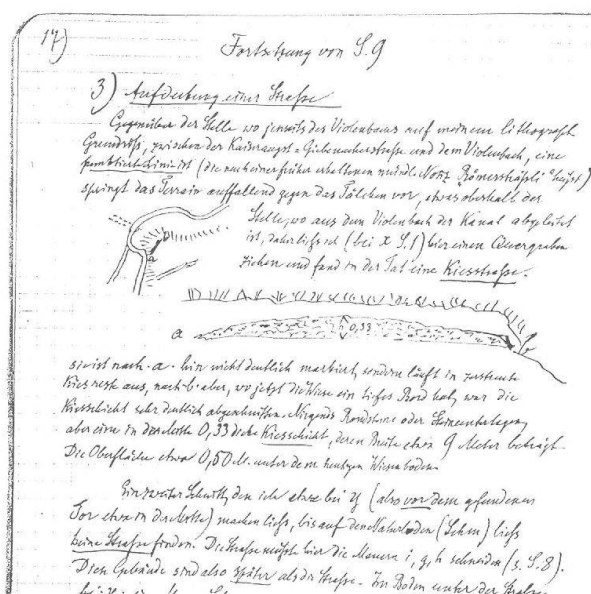 17)
Fortsetzung von S. 9
3) Aufdeckung einer Strasse
Gegenüber der Stelle wo jenseits des Violenbaces auf meinem lithograph.
Grundriss, zwischen der Kaiseraugst-Giebenacherstrasse und dem Violenbach, eine
punktierte Linie ist (die nach einer früher erhaltenen mündl. Notiz "Römersträssli" heisst)
springt das Terrain auffallend gegen das Tälchen vor, etwas oberhalb der
Stelle, wo aus dem Violenbach der Kanal abgeleitet
ist, daher liess ich (bei x S. 1) hier einen Quergraben
ziehen und fand in der Tat eine Kiesstrasse.
a 0,33 b
sie ist nach · a · hin nicht deutlich markirt, sondern läuft in zerstreute
Kiesreste aus, nach · b · aber, wo jetzt die Wiese ein tiefes Bord hat, war die
Kiesschicht sehr deutlich abgeschnitten. Nirgends Randsteine oder Steinunterlagen,
aber eine in der Mitte 0,33 dicke Kiesschicht, deren Breite etwa 9 Meter beträgt.
Die Oberfläche etwa 0,50 M. unter dem heutigen Wiesenboden.
Ein zweiter Schnitt, den ich etwa bei y (also vor dem gefundenen
Tor etwa in der Mitte) machen liess, bis auf den Naturboden (Lehm) liess
keine Strasse finden. Die Strasse müsste hier die Mauern i, g, h schneiden (s. S. 8).
Diese Gebäude sind also später als die Strasse. Im Boden unter der Strasse